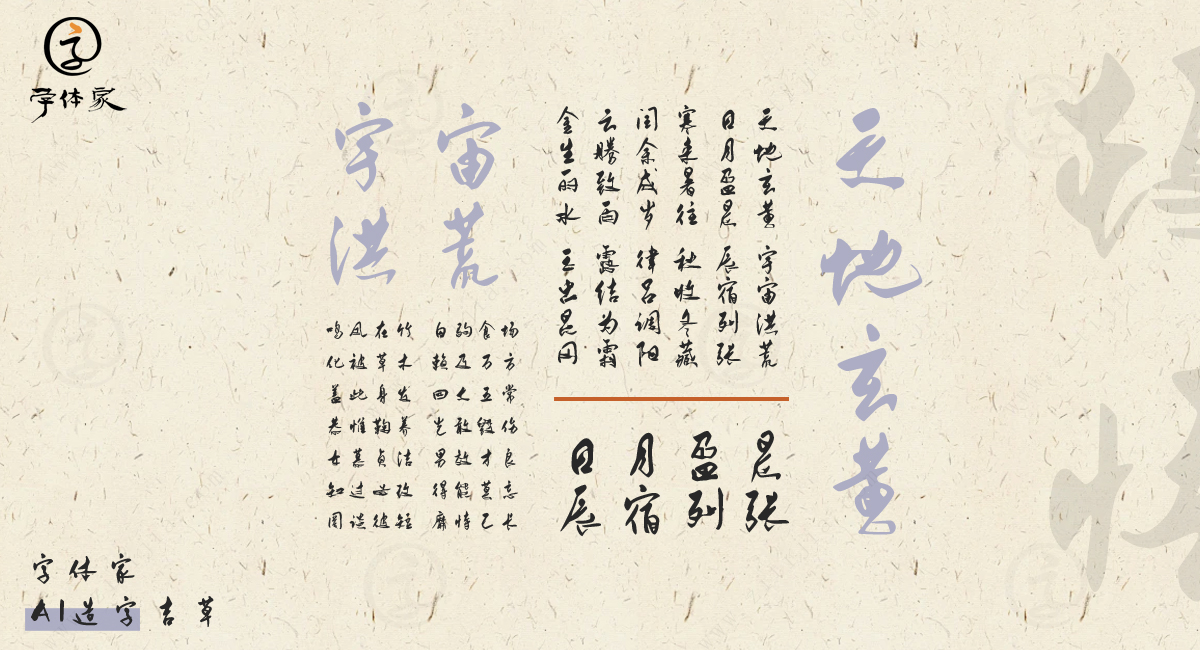 字体家
天地玄黄
天地玄黄 宇宙洪荒
日月盈昃 辰宿列张
寒来暑往 秋收冬藏
闰余成岁 律吕调阳
云腾致雨 露结为霜
金生丽水 玉出昆冈
日月盈昃
辰宿列张
宇宙
洪荒
鸣凤在竹 白驹食场
化被草木 赖及万方
盖此身发 四大五常
恭惟鞠养 岂敢毁伤
女慕贞洁 男效才良
知过必改 得能莫忘
罔谈彼短 靡恃己长
字体家
AI造字吉草